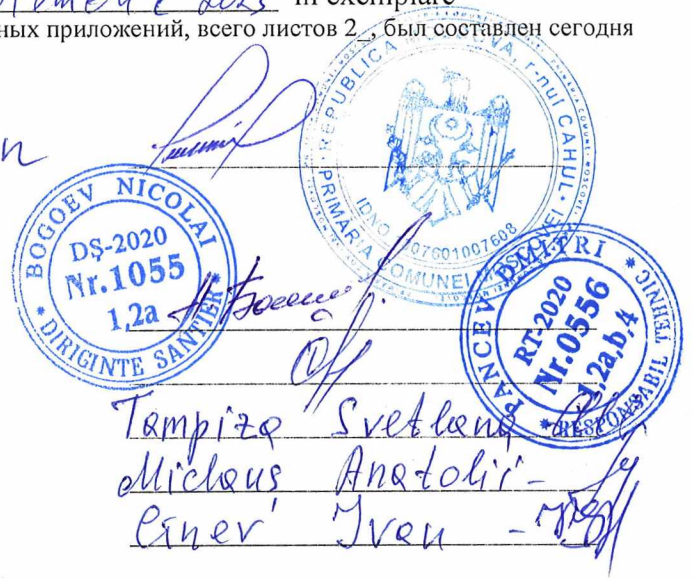 2023 in exemplare
ных приложений, всего листов 2_, был составлен сегодня
REPUBLICA MOLDOVA, r-nul CAHUL
PRIMĂRIA COMUNEI MOSCOVEI
IDNO 1007601007608
* BOGOEV NICOLAI *
DŞ-2020
Nr.1055
1,2a
DIRIGINTE ŞANTIER
PANCEV DMITRI
RT-2020
Nr.0556
1,2a,b,4
* RESPONSABIL TEHNIC *
Tampiza Svetlana
Miclaus Anatolii -
Ivan -